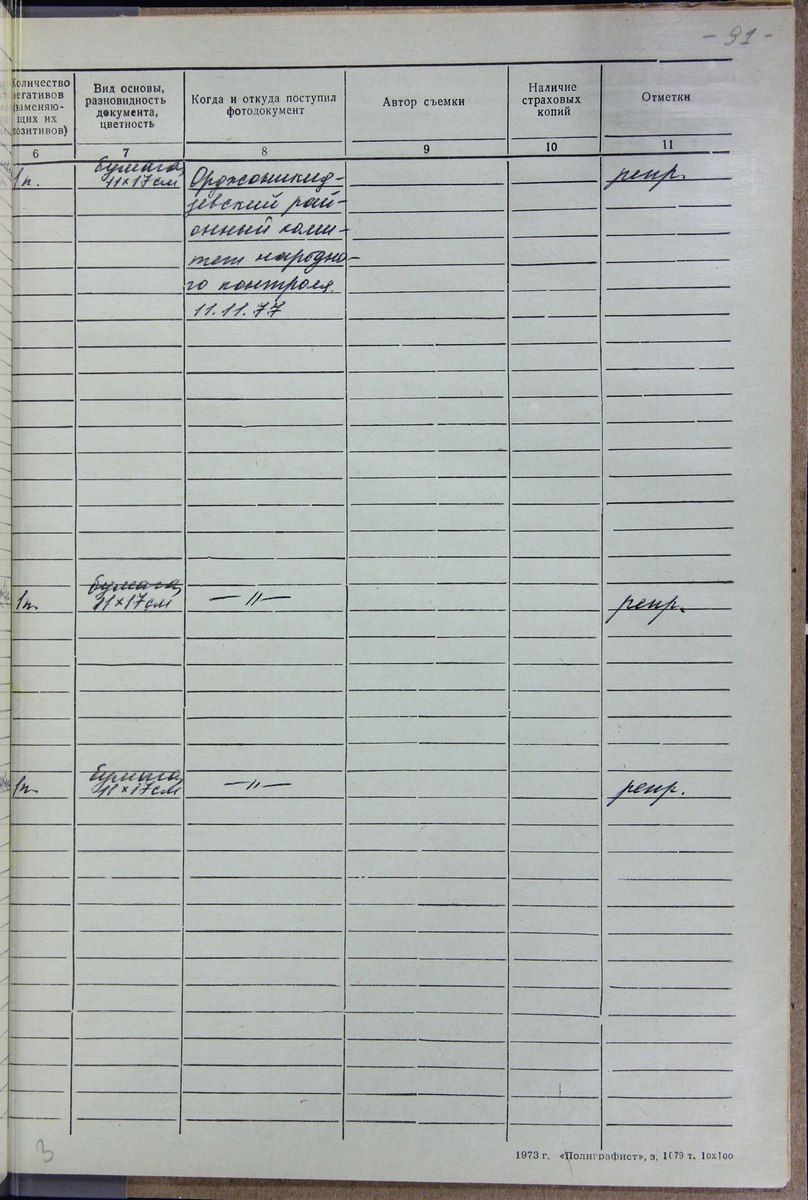 - 91 -
Количество
негативов
(заменяю-
щих их
позитивов)
Вид основы,
разновидность
документа,
цветность
Когда и откуда поступил
фотодокумент
Автор съемки
Наличие
страховых
копий
Отметки
6
7
8
9
10
11
1п.
бумага,
11×17см
Орджоникид-
зевский рай-
онный коми-
тет народно-
го контроля.
11.11.77
репр.
1п.
бумага,
11×17см
—〃—
репр.
1п.
бумага,
11×17см
—〃—
репр.
3
1973 г. «Полиграфист», з. 1079 т. 10х100